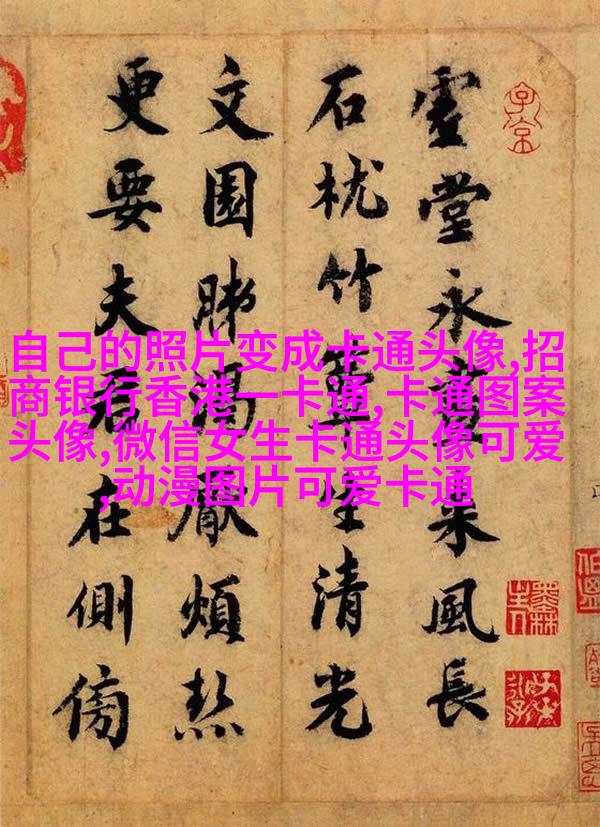 堂永來風長
石枕竹簟清光
文園肺渴厭煩熱
更要夫君在側傍
自己的照片变成卡通头像,招
商银行香港一卡通,卡通图案
头像,微信女生卡通头像可爱
,动漫图片可爱卡通